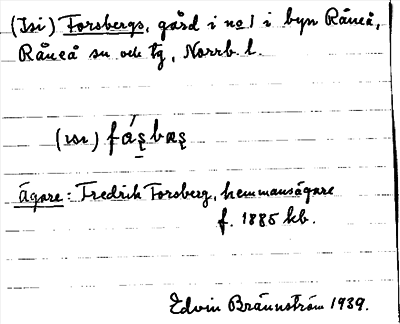 (Isi) Forsbergs, gård i no 1 i byn Råneå,
Råneå sn och tg, Norrb. l.
(ısı) fá̱s̨bæs̨
Ägare: Fredrik Forsberg, hemmansägare
f. 1885 hb.
Edvin Brännström 1939.